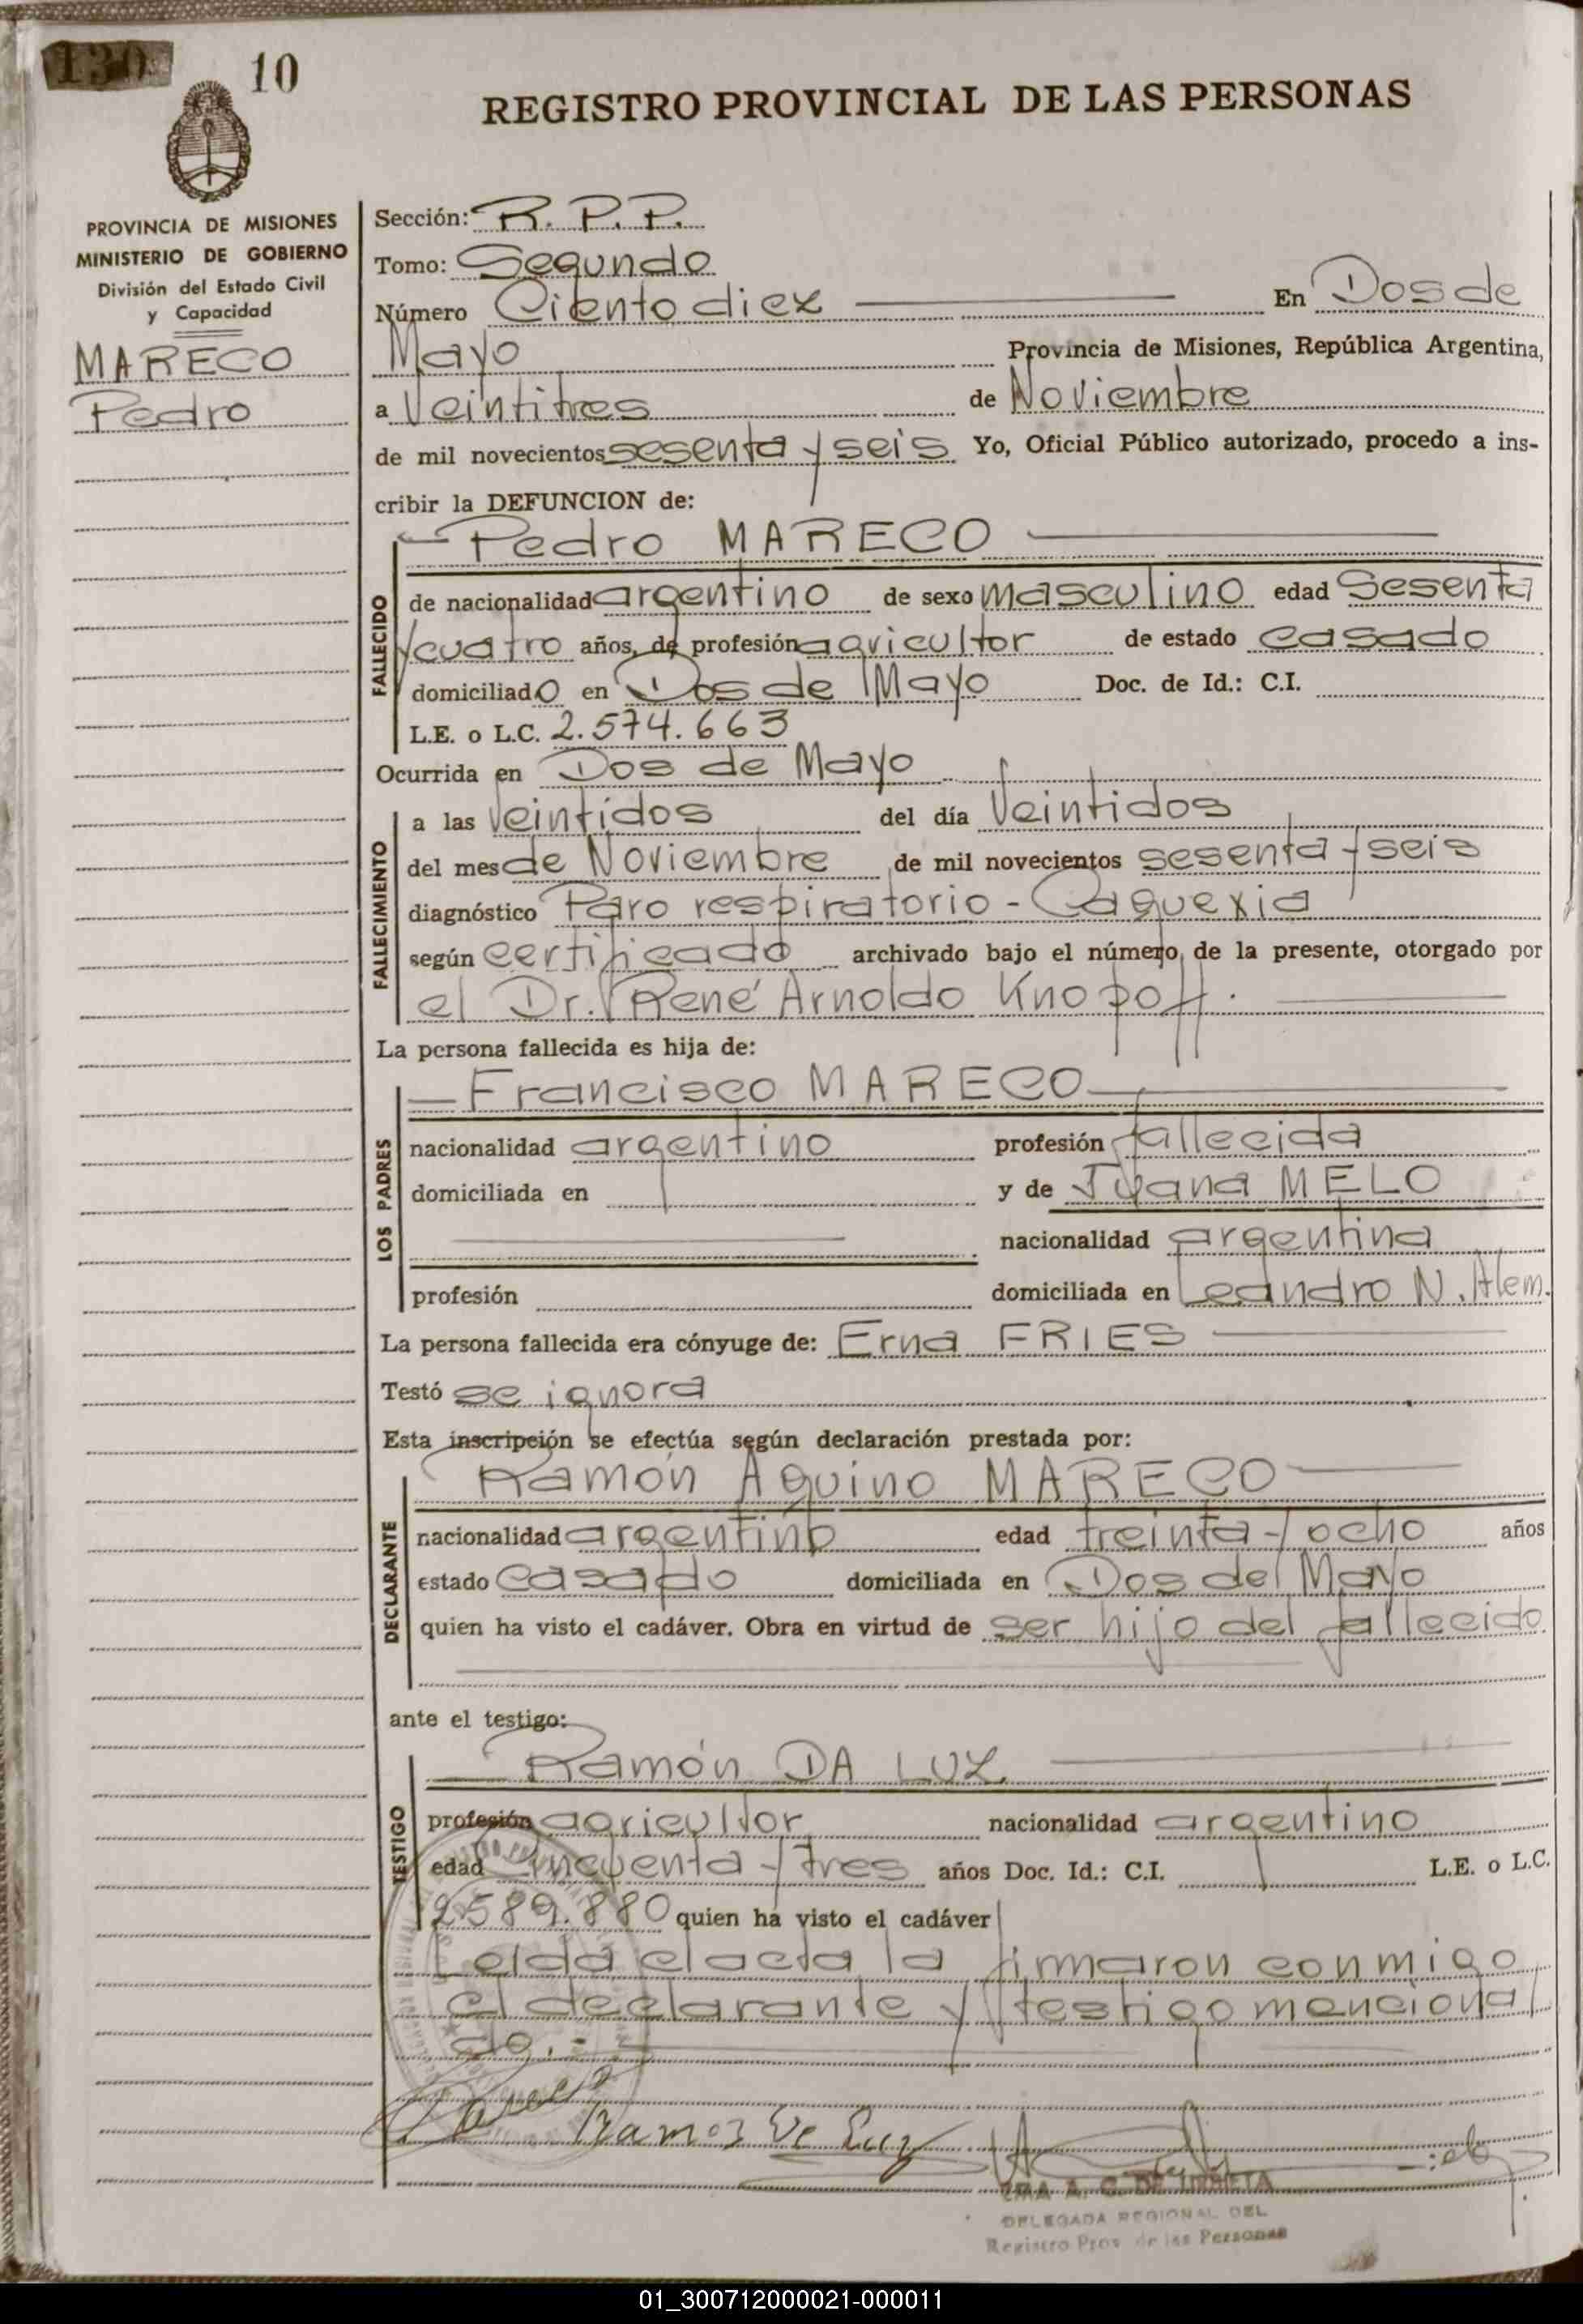 130 10
REGISTRO PROVINCIAL DE LAS PERSONAS
PROVINCIA DE MISIONES
MINISTERIO DE GOBIERNO
División del Estado Civil
y Capacidad
MARECO
Pedro
Sección: R. P. P.
Tomo: Segundo
Número Ciento diez En Dos de
Mayo Provincia de Misiones, República Argentina,
a Veintitres de Noviembre
de mil novecientos sesenta y seis Yo, Oficial Público autorizado, procedo a ins-
cribir la DEFUNCION de:
Pedro MARECO
FALLECIDO
de nacionalidad argentino de sexo masculino edad Sesenta
y cuatro años, de profesión agricultor de estado casado
domiciliado en Dos de Mayo Doc. de Id.: C.I.
L.E. o L.C. 2.574.663
Ocurrida en Dos de Mayo
FALLECIMIENTO
a las Veintidos del día Veintidos
del mes de Noviembre de mil novecientos sesenta y seis
diagnóstico Paro respiratorio - Caquexia
según certificado archivado bajo el número de la presente, otorgado por
el Dr. René Arnoldo Knopoff.
La persona fallecida es hija de:
Francisco MARECO
LOS PADRES
nacionalidad argentino profesión fallecida
domiciliada en y de Juana MELO
nacionalidad argentina
profesión domiciliada en Leandro N. Alem.
La persona fallecida era cónyuge de: Erna FRIES
Testó se ignora
Esta inscripción se efectúa según declaración prestada por:
Ramón Aquino MARECO
DECLARANTE
nacionalidad argentino edad treinta y ocho años
estado casado domiciliada en Dos del Mayo
quien ha visto el cadáver. Obra en virtud de ser hijo del fallecido
ante el testigo:
Ramón DA LUZ
TESTIGO
profesión agricultor nacionalidad argentino
edad Cincuenta y tres años Doc. Id.: C.I. L.E. o L.C.
2589.880 quien ha visto el cadáver
Leida el acta la firmaron conmigo
el declarante y testigo menciona
do.-
Ramos De Luz
A. C. DE URRIETA
DELEGADA REGIONAL DEL
Registro Prov. de las Personas
01_300712000021-000011